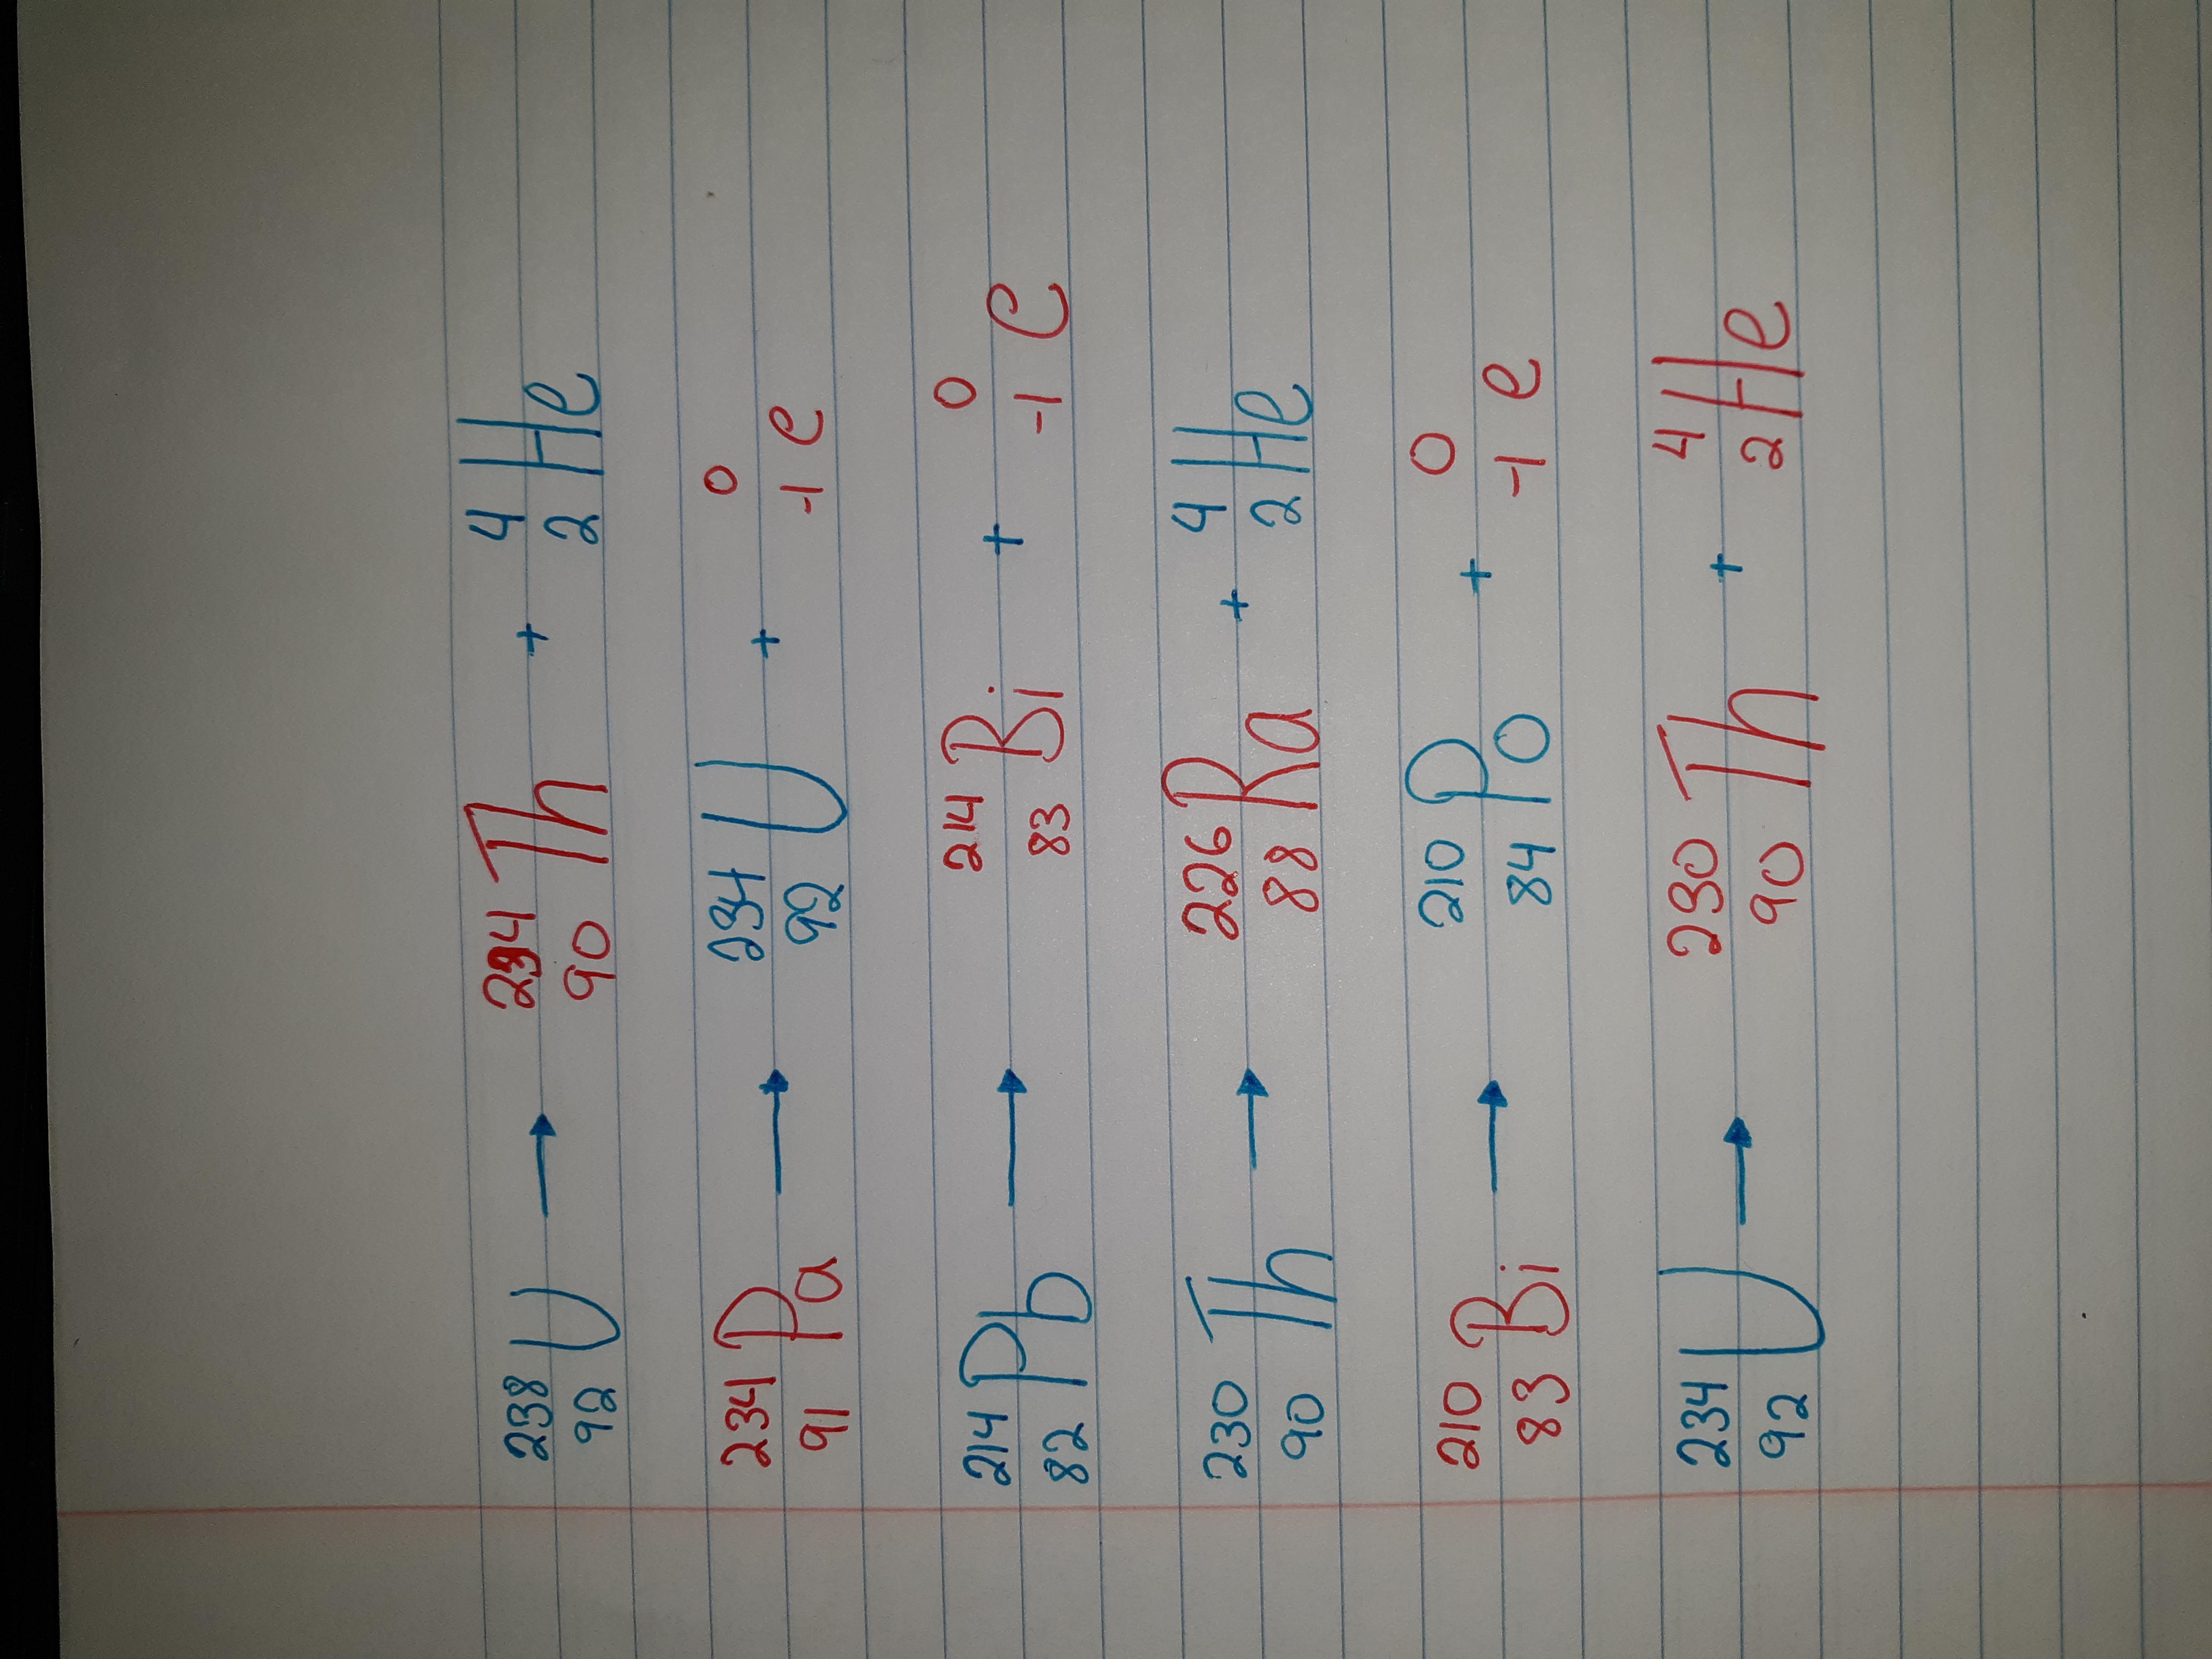 238 92 U → 234 90 Th + 4 2 He
234 91 Pa → 234 92 U + 0 -1 e
214 82 Pb → 214 83 Bi + 0 -1 e
230 90 Th → 226 88 Ra + 4 2 He
210 83 Bi → 210 84 Po + 0 -1 e
234 92 U → 230 90 Th + 4 2 He